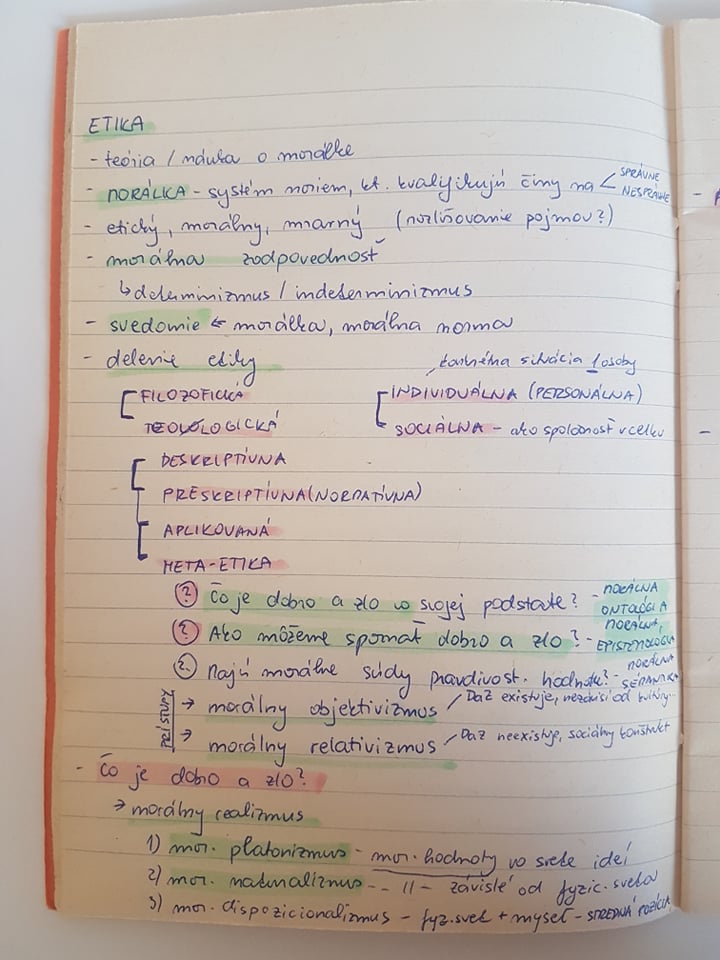 ETIKA
- teória / náuka o morálke
- MORÁLKA - systém noriem, kt. kvalifikujú činy na < SPRÁVNE
NESPRÁVNE
- etický, morálny, mravný (rozlišovanie pojmov?)
- morálna zodpovednosť
↳ determinizmus / indeterminizmus
- svedomie ← morálka, morálna norma
- delenie etiky
FILOZOFICKÁ
TEOLOGICKÁ
konkrétna situácia 1 osoby
INDIVIDUÁLNA (PERSONÁLNA)
SOCIÁLNA - ako spoločnosť v celku
DESKRIPTÍVNA
PRESKRIPTÍVNA (NORMATÍVNA)
APLIKOVANÁ
META-ETIKA
? Čo je dobro a zlo vo svojej podstate? - MORÁLNA ONTOLÓGIA
? Ako môžeme spoznať dobro a zlo? - MORÁLNA EPISTEMOLÓGIA
? Majú morálne súdy pravdivost. hodnotu? - MORÁLNA SÉMANTIKA
PRÍSTUPY
→ morálny objektivizmus / DaZ existuje, nezávisí od kultúry...
→ morálny relativizmus / DaZ neexistuje, sociálny konštrukt
- Čo je dobro a zlo?
→ morálny realizmus
1) mor. platonizmus - mor. hodnoty vo svete ideí
2) mor. naturalizmus - - 11 - závislé od fyzic. sveta
3) mor. dispozicionalizmus - fyz. svet + myseľ - STREDNÁ POZÍCIA